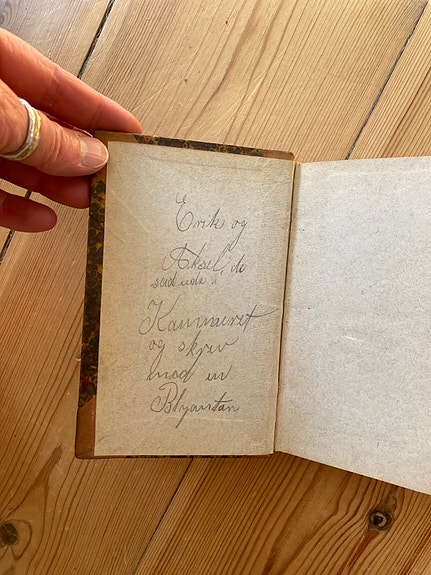 Erik og
Aksel, de
sad ude i
Kammeret
og skrev
med en
Blyantan